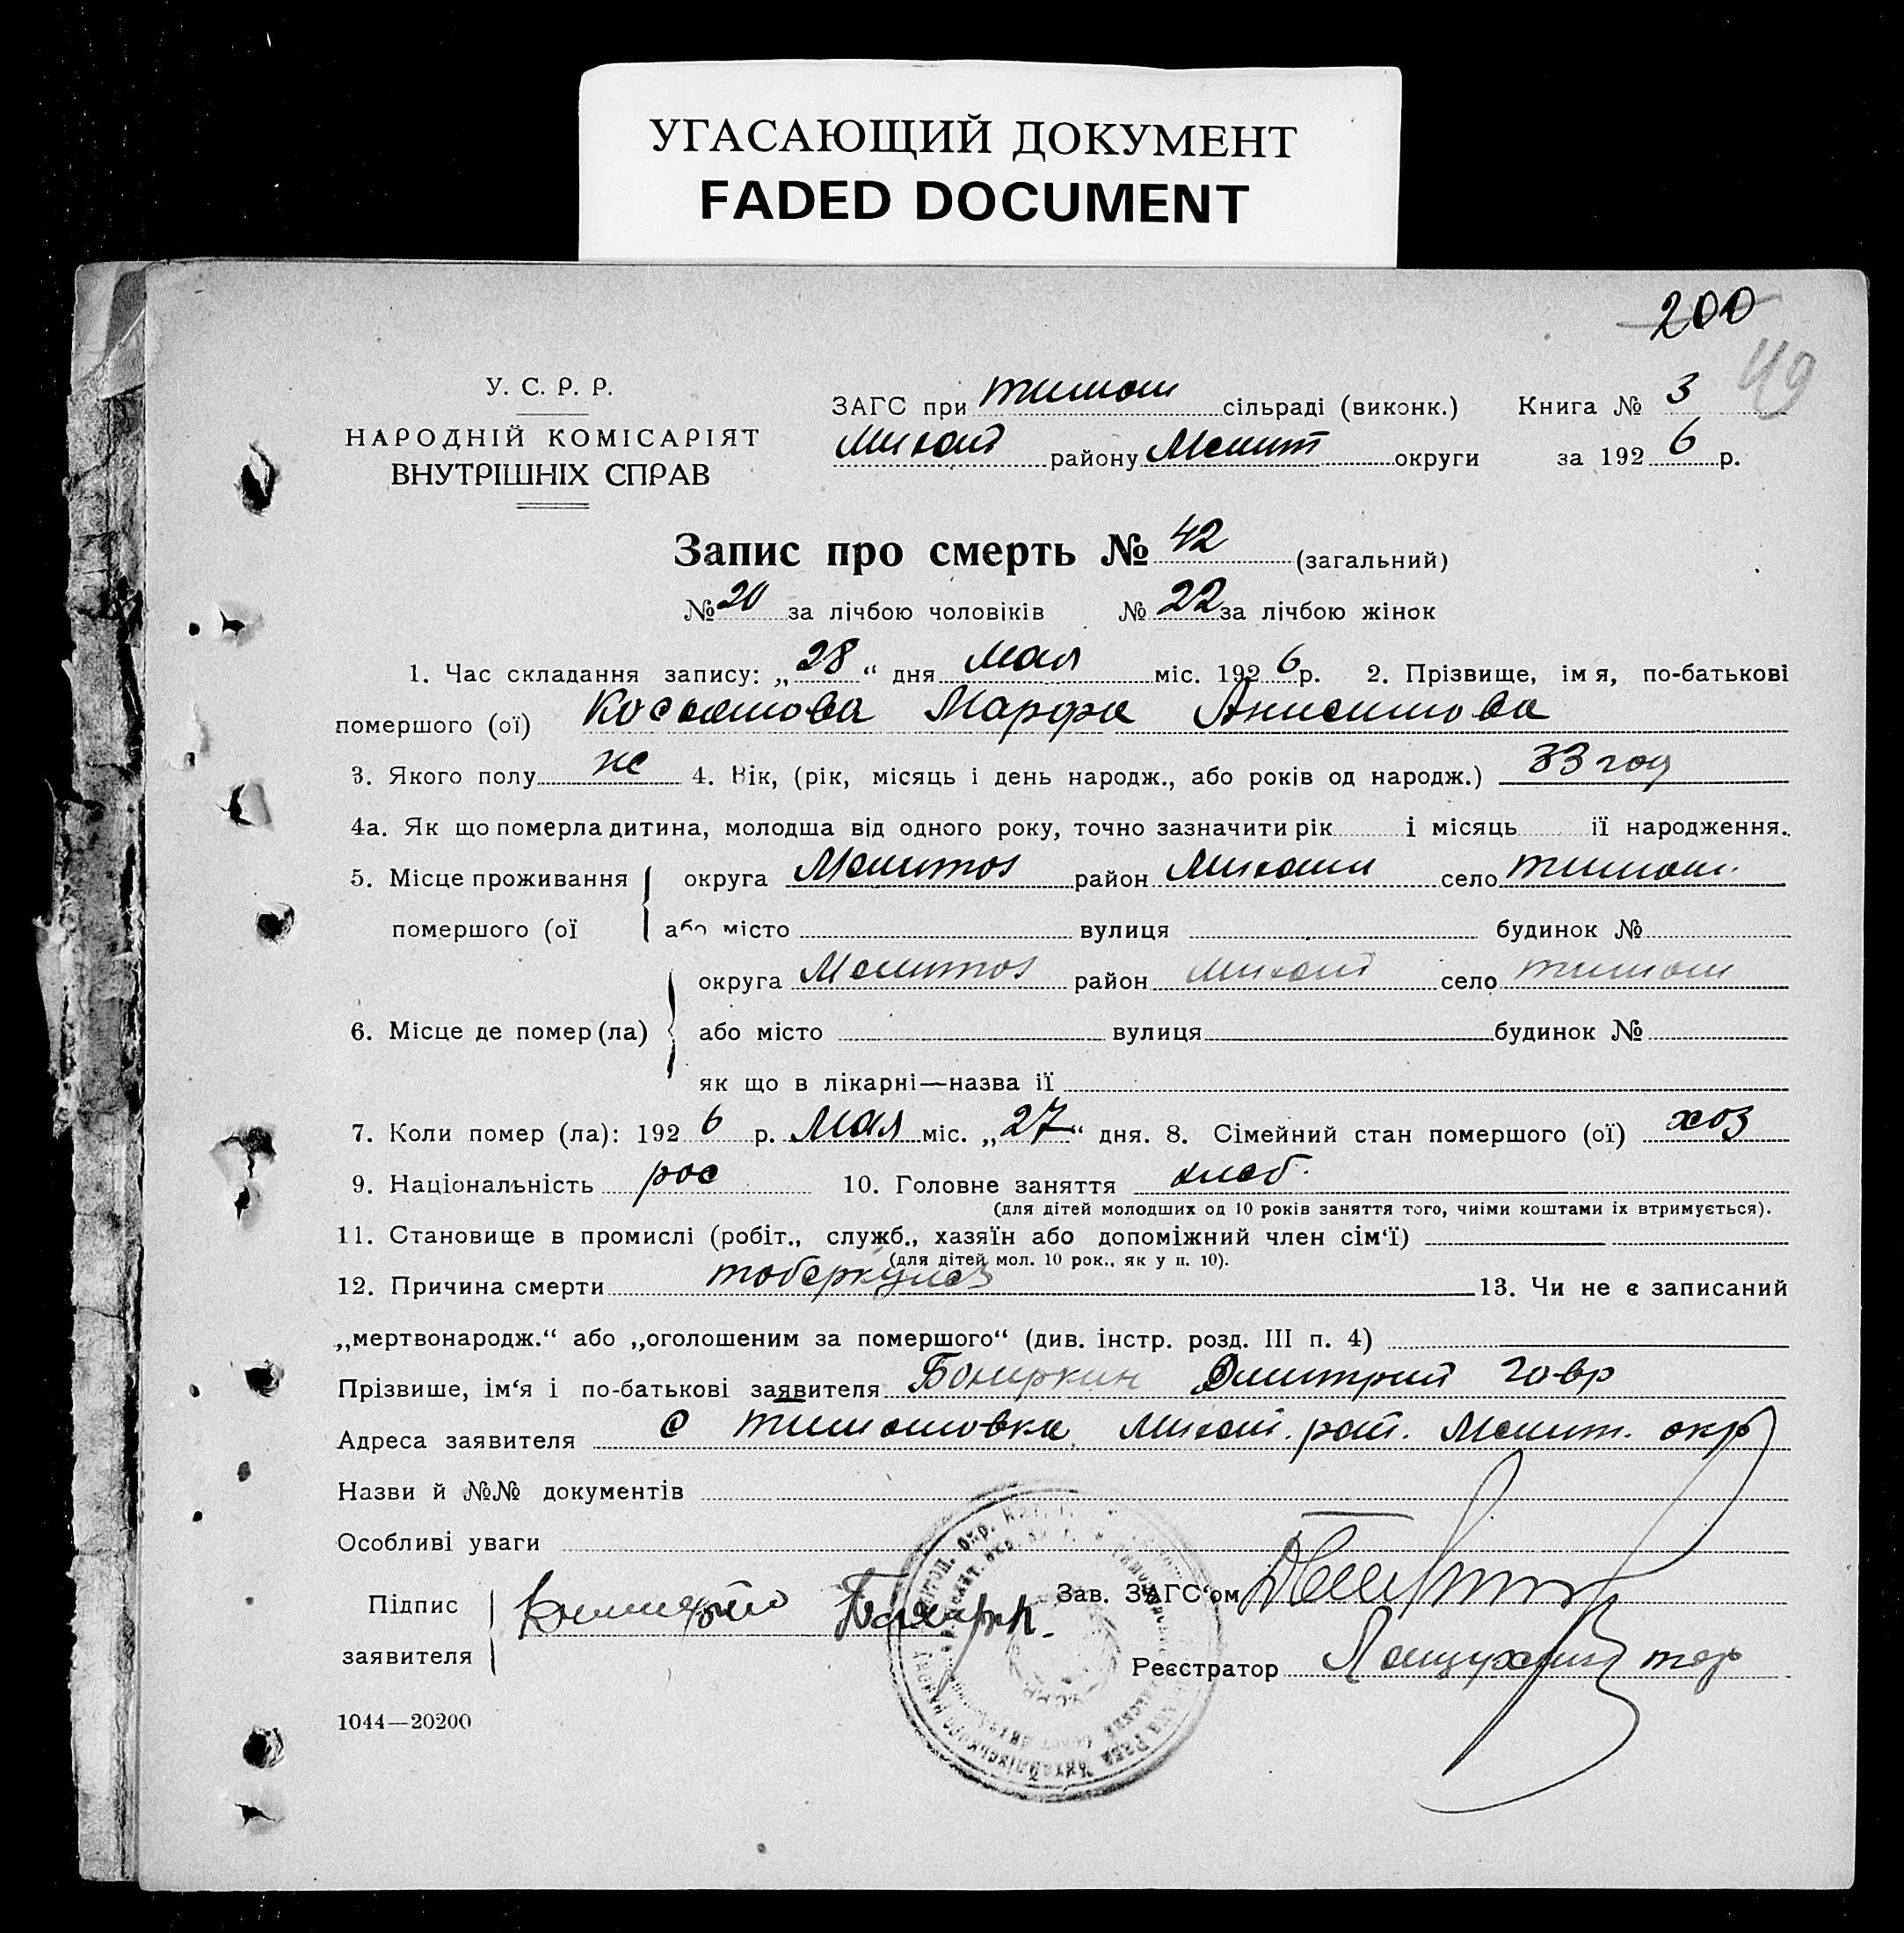 УГАСАЮЩИЙ ДОКУМЕНТ
FADED DOCUMENT
200
49
У. С. Р. Р.
НАРОДНІЙ КОМІСАРІЯТ
ВНУТРІШНІХ СПРАВ
ЗАГС при тимош сільраді (виконк.) Книга № 3
Михай району Мелит округи за 1926 р.
Запис про смерть № 42 (загальний)
№ 20 за лічбою чоловіків № 22 за лічбою жінок
1. Час складання запису: „28“ дня Мая міс. 1926 р. 2. Прізвище, імя, по-батькові
помершого (ої) Марфа Анисимова
3. Якого полу ж 4. Вік, (рік, місяць і день народж., або років од народж.) 33 год
4а. Як що померла дитина, молодша від одного року, точно зазначити рік і місяць її народження.
5. Місце проживання округа Мелитоп район Михайл село тимош.
помершого (ої або місто вулиця будинок №
округа Мелитоп район Михай село тимош
6. Місце де помер (ла) або місто вулиця будинок №
як що в лікарні—назва її
7. Коли помер (ла): 1926 р. Мая міс. „27“ дня. 8. Сімейний стан помершого (ої) хоз
9. Національність рос 10. Головне заняття хлеб.
(для дітей молодших од 10 років заняття того, чиїми коштами їх втримується).
11. Становище в промислі (робіт., служб., хазяїн або допоміжний член сім‘ї)
(для дітей мол. 10 рок., як у п. 10).
12. Причина смерти тоберкулез 13. Чи не є записаний
„мертвонародж.“ або „оголошеним за помершого“ (див. інстр. розд. III п. 4)
Прізвише, ім‘я і по-батькові заявителя Дмитрий Гавр
Адреса заявителя с тимошовка Михай. рай. Мелит. окр
Назви й №№ документів
Особливі уваги
Підпис Зав. ЗАГС‘ом
заявителя Реєстратор
1044—20200